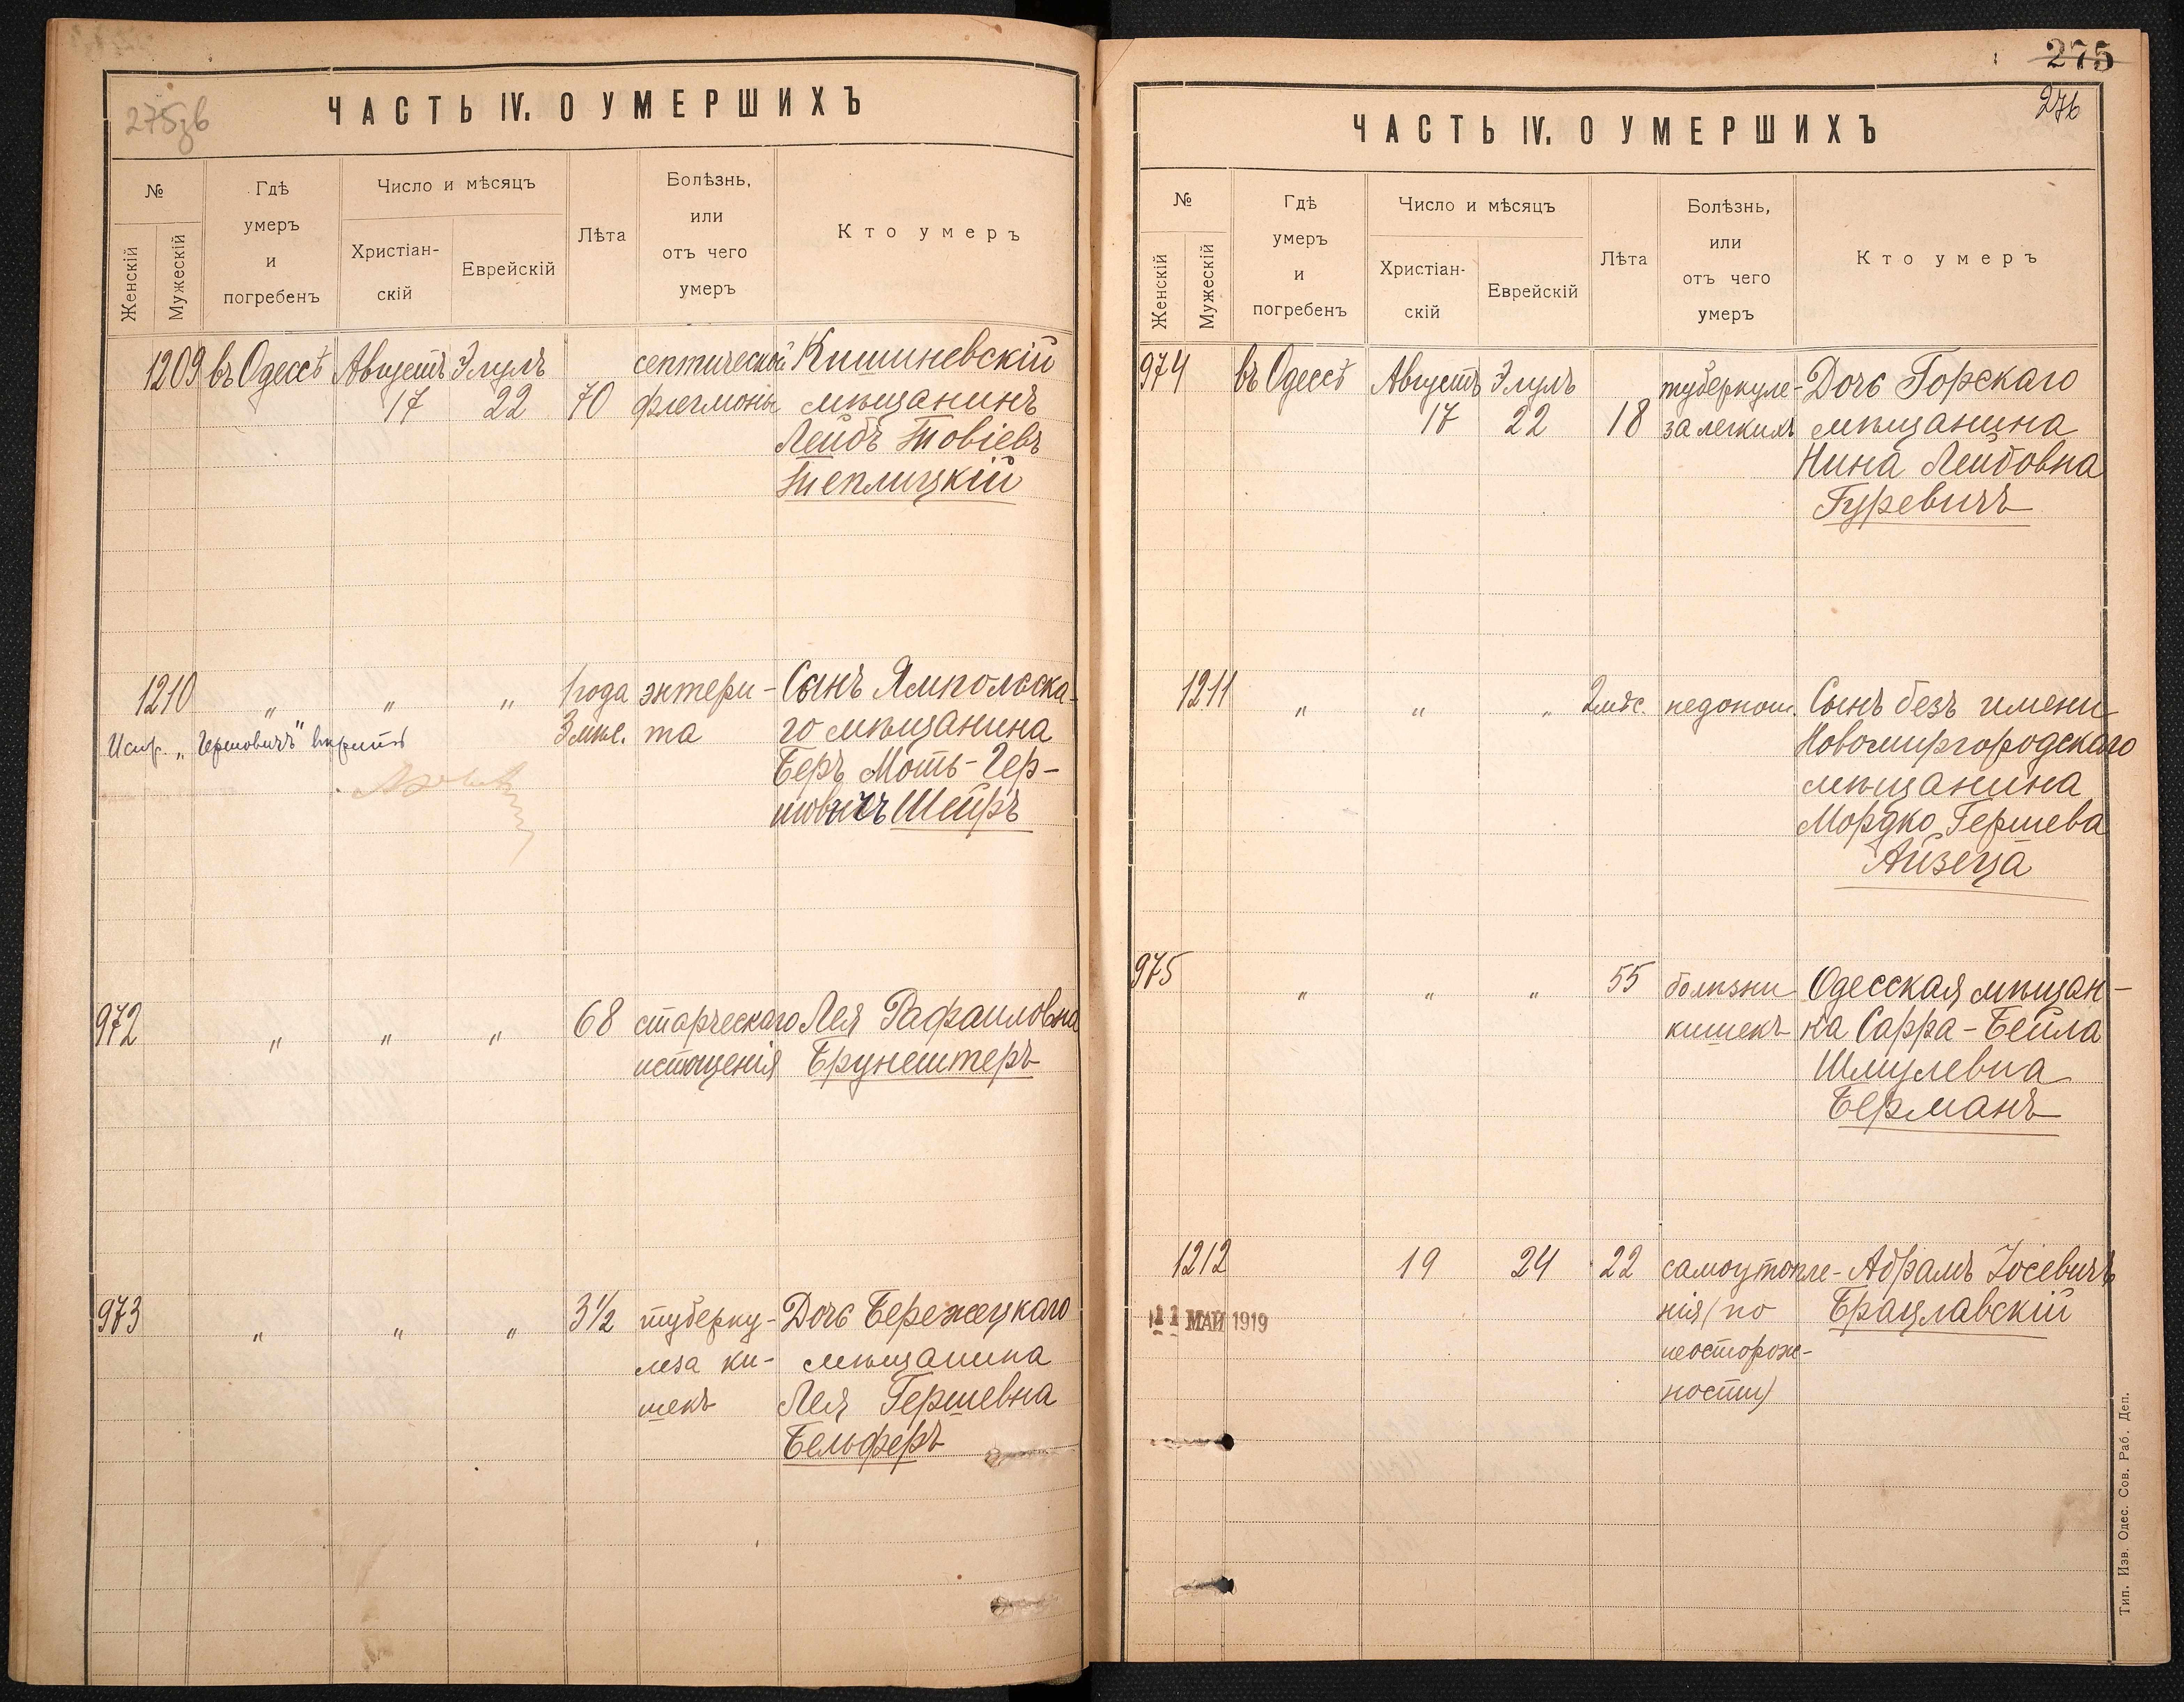 275зв
ЧАСТЬ IV. О УМЕРШИХЪ
№
Женскій
Мужескій
Гдѣ
умеръ
и
погребенъ
Число и мѣсяцъ
Христіан-
скій
Еврейскій
Лѣта
Болѣзнь,
или
отъ чего
умеръ
Кто умеръ
1209 въ Одессѣ Августъ Элулъ септической Кишиневскій
17 22 70 флегмоны мѣщанинъ
Лейбъ Товіевъ
Теплицкій
1210 " " " 1 года энтери- Сынъ Ямпольска-
3 мѣс. та го мѣщанина
Испр. „Гершовичъ" вѣрить
Беръ Моть-Гер-
шовичъ Шейръ
972 " " " 68 старческаго Лея Рафаиловна
истощенія Брунештеръ
973 " " " 3½ туберку- Дочь Бережецкаго
леза ки- мѣщанина
шекъ Лея Гершевна
Бельферъ
275
276
ЧАСТЬ IV. О УМЕРШИХЪ
№
Женскій
Мужескій
Гдѣ
умеръ
и
погребенъ
Число и мѣсяцъ
Христіан-
скій
Еврейскій
Лѣта
Болѣзнь,
или
отъ чего
умеръ
Кто умеръ
974 въ Одессѣ Августъ Элулъ туберкуле- Дочь Горскаго
17 22 18 за легкихъ мѣщанина
Нина Лейбовна
Гуревичъ
1211 " " " 2 мѣс. недонош. Сынъ безъ имени
Новомиргородскаго
мѣщанина
Мордко Гершева
Айзеца
975 " " " 55 болѣзни Одесская мѣщан-
кишекъ ка Сарра-Бейла
Шмулевна
Берманъ
1212 19 24 22 самоутопле- Абрамъ Іосевичъ
нія (по Брацлавскій
неосторож-
ности)
11 МАЙ 1919
Тип. Изв. Одес. Сов. Раб. Деп.